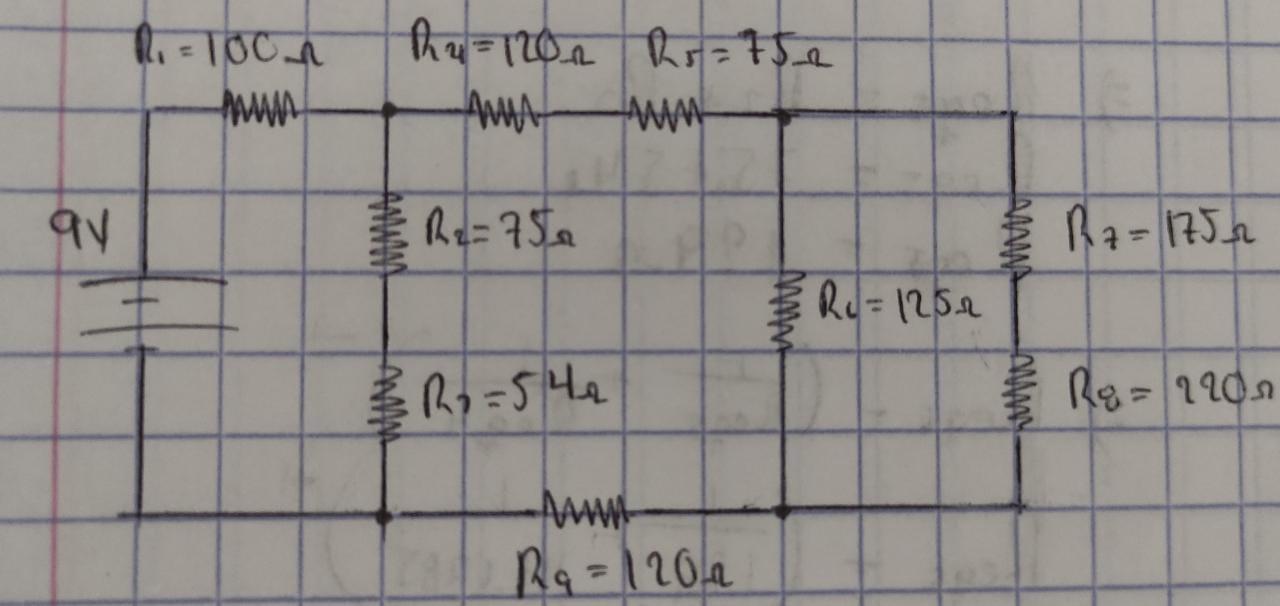 R₁ = 100Ω
R₄ = 120Ω
R₅ = 75Ω
9V
R₂ = 75Ω
R₇ = 175Ω
R₆ = 125Ω
R₃ = 54Ω
R₈ = 220Ω
R₉ = 120Ω